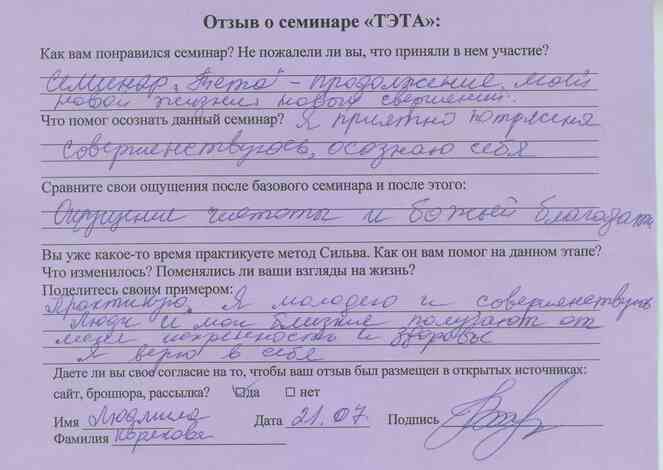 Отзыв о семинаре «ТЭТА»:
Как вам понравился семинар? Не пожалели ли вы, что приняли в нем участие?
Семинар „Тета" – продолжение моей
новой жизни, новых свершений.
Что помог осознать данный семинар? Я приятно потрясена
Совершенствуюсь, осознаю себя
Сравните свои ощущения после базового семинара и после этого:
Ощущение чистоты и божьей благодати
Вы уже какое-то время практикуете метод Сильва. Как он вам помог на данном этапе?
Что изменилось? Поменялись ли ваши взгляды на жизнь?
Поделитесь своим примером:
Практикую. Я молодею и совершенствуюсь
Люди и мои близкие получают от
меня искренность и здоровье
Я верю в себя
Даете ли вы свое согласие на то, чтобы ваш отзыв был размещен в открытых источниках:
сайт, брошюра, рассылка? да нет
Имя Людмила Дата 21.07 Подпись
Фамилия